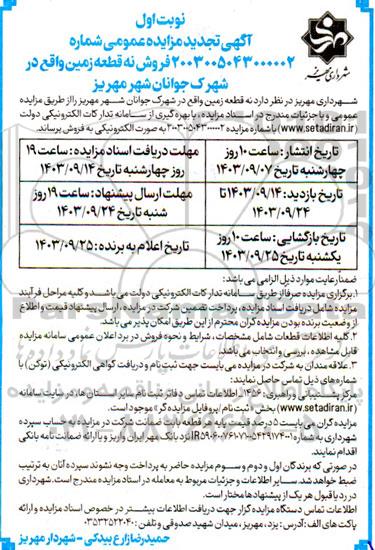 نوبت اول
آگهی تجدید مزایده عمومی شماره
۲۰۰۳۰۰۵۰۴۳۰۰۰۰۰۲ فروش نه قطعه زمین واقع در
شهرک جوانان شهر مهریز
شهرداری مهریز
شهرداری مهریز در نظر دارد نه قطعه زمین واقع در شهرک جوانان شهر مهریز را از طریق مزایده
عمومی و با جزئیات مندرج در اسناد مزایده، با بهره گیری از سامانه تدارکات الکترونیکی دولت
(www.setadiran.ir) با شماره مزایده ۲۰۰۳۰۰۵۰۴۳۰۰۰۰۰۲ به صورت الکترونیکی به فروش برساند.
تاریخ انتشار: ساعت ۱۰ روز
چهارشنبه تاریخ ۱۴۰۳/۰۹/۰۷
مهلت دریافت اسناد مزایده: ساعت ۱۹
روز چهارشنبه تاریخ ۱۴۰۳/۰۹/۱۴
تاریخ بازدید: ۱۴۰۳/۰۹/۱۴ تا
۱۴۰۳/۰۹/۲۴
مهلت ارسال پیشنهاد: ساعت ۱۹ روز
شنبه تاریخ ۱۴۰۳/۰۹/۲۴
تاریخ بازگشایی: ساعت ۱۰ روز
یکشنبه تاریخ ۱۴۰۳/۰۹/۲۵
تاریخ اعلام به برنده: ۱۴۰۳/۰۹/۲۵
ضمنا رعایت موارد ذیل الزامی می باشد:
۱. برگزاری مزایده صرفا از طریق سامانه تدارکات الکترونیکی دولت می باشد و کلیه مراحل فرآیند
مزایده شامل دریافت اسناد مزایده، پرداخت تضمین شرکت در مزایده، ارسال پیشنهاد قیمت و اطلاع
از وضعیت برنده بودن مزایده گران محترم از این طریق امکان پذیر می باشد.
۲. کلیه اطلاعات قطعات شامل مشخصات، شرایط و نحوه فروش در برد اعلان عمومی سامانه مزایده
قابل مشاهده، بررسی و انتخاب می باشد.
۳. علاقه مندان به شرکت در مزایده می بایست جهت ثبت نام و دریافت گواهی الکترونیکی (توکن) با
شماره های ذیل تماس حاصل نمایند:
مرکز پشتیبانی و راهبری: ۱۴۵۶ اطلاعات تماس دفاتر ثبت نام سایر استان ها، در سایت سامانه
(www.setadiran.ir) بخش «ثبت نام/پروفایل مزایده گر» موجود است.
مزایده گران می بایست ۵ درصد قیمت پایه هر قطعه را بابت ضمانت شرکت در مزایده به حساب سپرده
نزد بانک مهر ایران واریز و یا ارائه ضمانت نامه بانکی
اقدام نمایند.
در صورتی که برندگان اول و دوم و سوم مزایده حاضر به پرداخت وجه نشوند سپرده آنان به ترتیب
ضبط خواهد شد. سایر اطلاعات و جزئیات مربوط به معامله در اسناد مزایده مندرج است. شهرداری
در رد یا قبول هر یک از پیشنهادها مختار است.
اطلاعات تماس دستگاه مزایده گزار جهت دریافت اطلاعات بیشتر در خصوص اسناد مزایده و ارائه
پاکت های الف: آدرس: یزد، مهریز، میدان شهید صدوقی و تلفن: ۰۳۵۳۲۵۲۲۰۴۰
حمیدرضا زارع بیدکی - شهردار مهریز